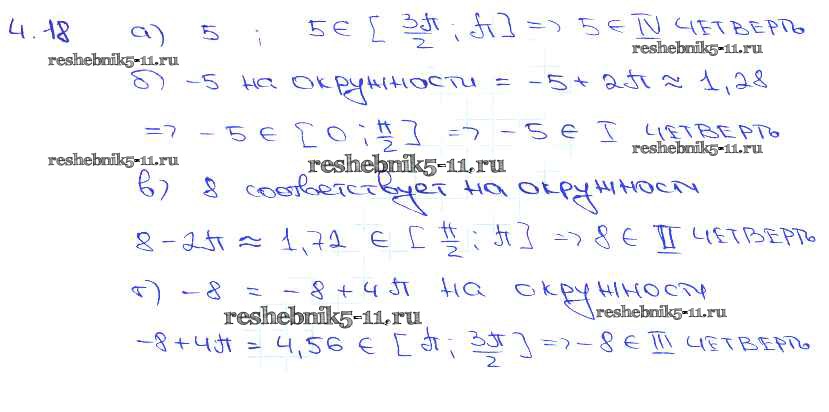 4.18 а) 5 ; 5 ∈ [ 3π/2 ; π ] => 5 ∈ IV ЧЕТВЕРТЬ
reshebnik5-11.ru reshebnik5-11.ru
б) -5 на окружности = -5 + 2π ≈ 1,28
=> -5 ∈ [ 0 ; π/2 ] => -5 ∈ I ЧЕТВЕРТЬ
reshebnik5-11.ru reshebnik5-11.ru reshebnik5-11.ru
в) 8 соответствует на окружности
8 - 2π ≈ 1,72 ∈ [ π/2 ; π ] => 8 ∈ II ЧЕТВЕРТЬ
г) -8 = -8 + 4π на окружности
reshebnik5-11.ru reshebnik5-11.ru
-8 + 4π = 4,56 ∈ [ π ; 3π/2 ] => -8 ∈ III ЧЕТВЕРТЬ